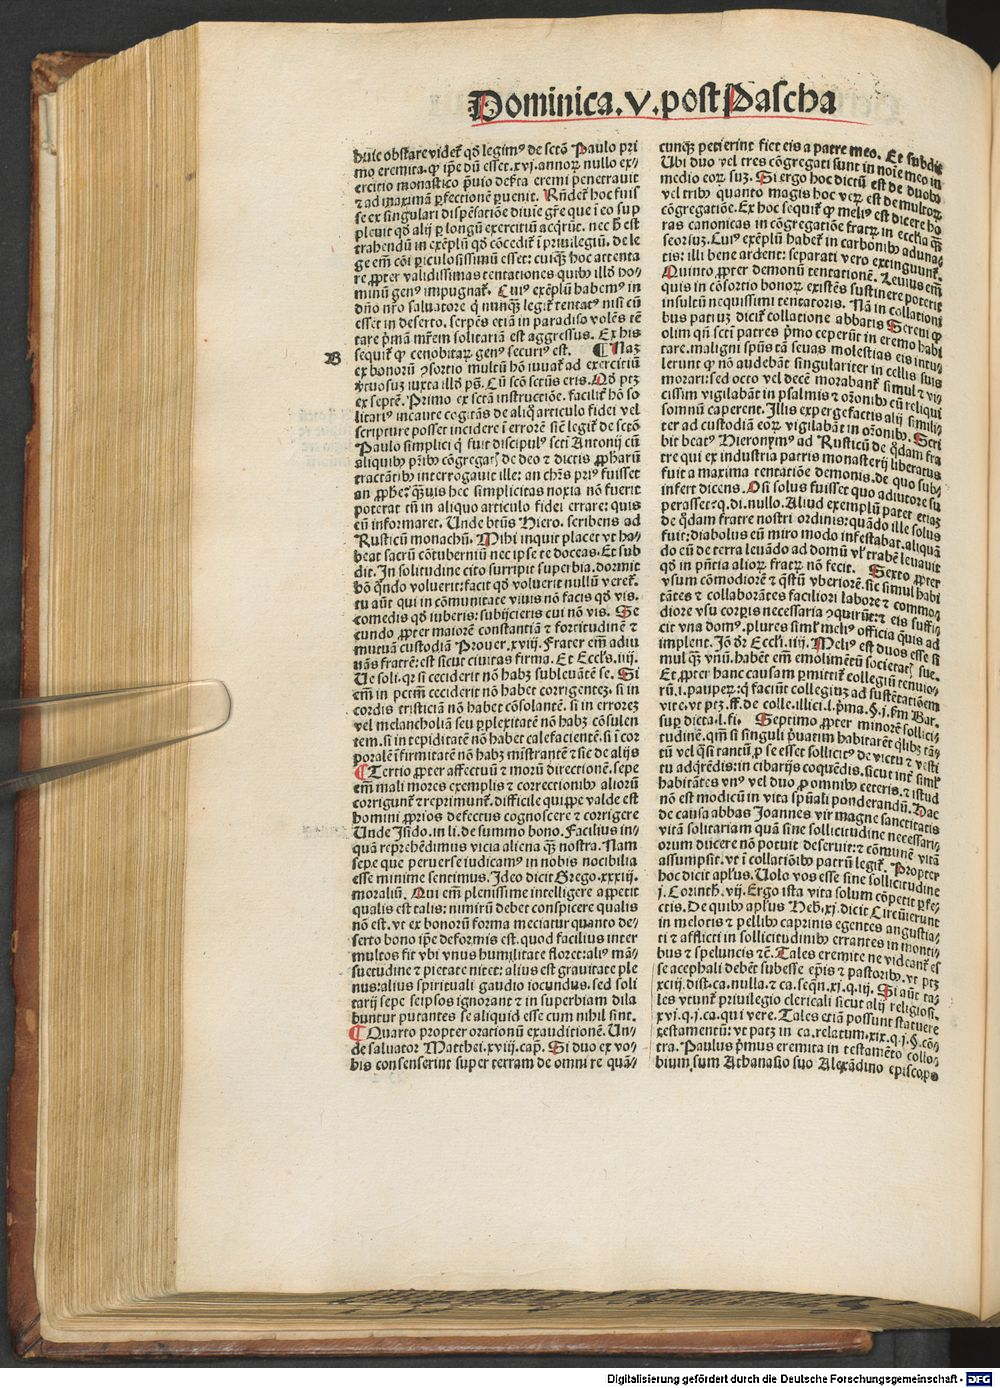 Dominica.v.post Pascha
huic obstare videt̃ qd̃ legimꝰ de sctõ Paulo pri
mo eremita.qͥ ip̃e dũ esset.xvj.annoꝝ nullo ex⸗
ercitio monastico p̃uio deẜta eremi penetrauit
⁊ ad maximã ꝑfectionẽ ꝑuenit. Rñdet̃ hoc fuis
se ex singulari dispẽsatiõe diuĩe gr̃e que ĩ eo sup
pleuit qd̃ alij ꝑ longũ exercitiũ acq̃rũt. nec h̃ est
trahendũ in exẽplũ qd̃ cõcedit̃ ĩ priuilegiũ. de le
ge em̃ cõi ꝑiculosissimũ esset: cuiq̃ꝫ hoc attenta
re ꝓpter validissimas tentationes quibꝰ illd̃ ho⸗
minũ genꝰ impugnat̃. Cuiꝰ exẽplũ habemꝰ in
dño nr̃o saluatore q̃ nunq̃ꝫ legit̃ tentatꝰ nisi cũ
esset in deserto. serpẽs etiã in paradiso volẽs tẽ
tare p̃mã mr̃em solitariã est aggressus. Ex his
B
sequit̃ ꝙ cenobitaꝝ genꝰ securiꝰ est. ¶ Naꝫ
ex bonorũ ꝯsortio multũ hõ iuuat̃ ad exercitiũ
ṽtuosuꝫ iuxta illd̃ pṡ. Cũ scõ sctũs eris. Qd̃ ptꝫ
ex septẽ. Primo ex sctã instructiõe. facilit̃ hõ so
litariꝰ incaute cogitãs de aliq̃ articulo fidei vel
scripture posset incidere ĩ errorẽ siẽ legit̃ de sctõ
Paulo simplici q̃ fuit discipulꝰ scti Antonij cũ
aliquibꝰ pr̃ibꝰ cõgregatꝭ de deo ⁊ dictis ꝓpharũ
tractãtibꝰ interrogauit ille: an chr̃s priꝰ fuisset
an ꝓphet̃ q̃ꝫuis hec simplicitas noxia nõ fuerit
poterat tñ in aliquo articulo fidei errare: quis
eũ informaret. Unde btũs Hiero. scribens ad
Rusticũ monachũ. Mihi inquit placet vt ha⸗
beat sacrũ cõtuberniũ nec ipse te doceas. Et sub
dit. In solitudine cito surripit superbia. dormit
hõ qñdo voluerit: facit qd̃ voluerit nullũ veret̃.
tu aũt qui in cõmunitate viuis nõ facis qd̃ vis.
comedis qd̃ iuberis: subijceris cui nõ vis. Se
cundo ꝓpter maiorẽ constantiã ⁊ fortitudinẽ ⁊
mutuã custodiã Prouer.xviij. Frater em̃ adiu
uãs fratrẽ: est sicut ciuitas firma. Et Eccl̃s.iiij.
Ue soli. qꝛ si ceciderit nõ habꝫ subleuãtẽ se. Si
em̃ in petm̃ ceciderit nõ habet corrigenteꝫ. si in
cordis tristiciã nõ habet cõsolantẽ. si in erroreꝫ
vel melancholiã seu ꝑplexitatẽ nõ habꝫ cõsulen
tem. si in tepiditatẽ nõ habet calefacientẽ. si ĩ cor
poralẽ ĩfirmitatẽ nõ habꝫ mĩstrantẽ ⁊ sic de alijs
¶ Tertio ꝓpter affectuũ ⁊ morũ directionẽ. sepe
em̃ mali mores exemplis ⁊ correctionibꝰ aliorũ
corrigunt̃ ⁊ reprimunt̃. difficile quippe valde est
homini ꝓprios defectus cognoscere ⁊ corrigere
Unde Jsido. in li. de summo bono. Facilius in⸗
quã reprehẽdimus vicia aliena q̃ꝫ nostra. Nam
sepe que peruerse iudicamꝰ in nobis nocibilia
esse minime sentimus. Ideo dicit Grego.xxxiij.
moraliũ. Qui em̃ plenissime intelligere appetit
qualis est talis: nimirũ debet conspicere qualis
nõ est. vt ex bonorũ forma meciatur quanto de⸗
serto bono ip̃e deformis est. quod facilius inter
multos fit vbi vnus humilitate floret: aliꝰ mã⸗
suetudine ⁊ pietate nitet: alius est grauitate ple
nus: alius spirituali gaudio iocundus. sed soli
tarij sepe seipsos ignorant ⁊ in superbiam dila
buntur putantes se aliquid esse cum nihil sint.
¶ Quarto propter orationũ exauditionẽ. Un⸗
de saluator Matthei.xviij.cap̃. Si duo ex vo⸗
bis consenserint super terram de omni re quã⸗
cunq̃ꝫ petierint fiet eis a patre meo. Et subdit
Ubi duo vel tres cõgregati sunt in noĩe meo in
medio eoꝝ suꝫ. Si ergo hoc dictũ est de duobꝰ
vel tribꝰ quanto magis hoc veꝝ est de multoꝝ
cõgregatiõe. Ex hoc sequit̃ ꝙ meliꝰ est dicere ho
ras canonicas in cõgregatiõe fratꝝ in ecclia q̃ꝫ
seorsuꝫ. Cuiꝰ exẽplũ habet̃ in carbonibꝰ aduna⸗
tis: illi bene ardent: separati vero extinguunt̃.
Quinto ꝓpter demonũ tentationẽ. Leuius em̃
quis in cõsortio bonoꝝ existẽs sustinere poterit
insultũ nequissimi tentatoris. Nã in collationi
bus patꝝ dicit̃ collatione abbatis Sereni ꝙ
olim qñ scti patres p̃mo ceperũt in eremo habi
tare. maligni spũs tã seuas molestias eis intu⸗
lerunt ꝙ nõ audebãt singulariter in cellis suis
morari: sed octo vel decẽ morabant̃ simul ⁊ vi⸗
cissim vigilabãt in psalmis ⁊ oꝛõnibꝰ cũ reliqui
somnũ caperent. Illis expergefactis alij simili⸗
ter ad custodiã eoꝝ vigilabãt in oꝛõnibꝰ. Scri
bit beatꝰ Hieronymꝰ ad Rusticũ de q̃dam fra
tre qui ex industria patris monasterij liberatus
fuit a maxima tentatiõe demonis. de quo sub⸗
infert dicens. Qd̃ si solus fuisset quo adiutore su
perasset? q.di. nullo. Aliud exemplũ patet etiaꝫ
de q̃dam fratre nostri ordinis: quãdo ille solus
fuit: diabolus eũ miro modo infestabat. aliquã
do eũ de terra leuãdo ad domũ vl̃ trabẽ leuauit
qd̃ in p̃ntia alioꝝ fratꝝ nõ fecit. Sexto ꝓpter
vsum cõmodiorẽ ⁊ q̃stũ vberiorẽ. sic simul habi
tãtes ⁊ collaborãtes faciliori labore ⁊ commo⸗
diore vsu corpis necessaria ꝯquirũt: ⁊ eis suffi⸗
cit vna domꝰ. plures siml̃ meliꝰ officia quis ad
implent. Jõ dr̃ Eccl̃i.iiij. Meliꝰ est duos esse si
mul q̃ꝫ vnũ. habẽt em̃ emolimẽtũ societatꝭ sue.
Et ꝓpter hanc causam p̃mittit̃ collegiũ tenuio⸗
rũ.i. pauꝑeꝝ: q̃ faciũt collegiuꝫ ad sustẽtatiõem
vite. vt ptꝫ.ff.de colle.illici.l.p̃ma.§.j.ẜm Bar.
suꝑ dicta.l.fi. Septimo ꝓpter minorẽ sollici⸗
tudinẽ. qm̃ si singuli p̃uatim habitarẽt q̃libꝫ tã⸗
tũ vel q̃si tantũ ꝓ se esset sollicitꝰ de victu ⁊ vesti
tu adq̃rẽdis: in cibarijs coquẽdis. sicut int̃ siml̃
habitãtes vnꝰ vel duo ꝓ omnibꝰ ceteris. ⁊ istud
nõ est modicũ in vita sp̃uali ponderandũ. Hac
de causa abbas Joannes vir magne sanctitatis
vitã solitariam quã sine sollicitudine necessari⸗
orum ducere nõ potuit deseruit: ⁊ cõmunẽ vitã
assumpsit. vt ĩ collatiõibꝰ patrũ legit̃. Propter
hoc dicit apl̃us. Uolo vos esse sine sollicitudine
j. Corinth̃. vij. Ergo ista vita solum cõpetit ꝑfe⸗
ctis. De quibꝰ apl̃us Heb̃.xj. dicit Circũierunt
in melotis ⁊ pellibꝰ caprinis egentes angustia⸗
ti ⁊ afflicti in sollicitudinibꝰ errantes in monti⸗
bus ⁊ speluncis ⁊c̃. Tales eremite ne videant̃ es
se acephali debẽt subesse ep̃is ⁊ pastoribꝰ. vt ptꝫ
xciij.dist.ca.nulla.⁊ ca.seq̃n.xj.q.iij. Si aũt ta⸗
les vtunt̃ priuilegio clericali sicut alij religiosi.
xvj.q.j.ca.qui vere. Tales etiã possunt statuere
testamentũ: vt patꝫ in ca.relatum.xix.q.j.§.cõ⸗
tra. Paulus p̃mus eremita in testamẽto collo⸗
bium sum Athanasio suo Alexãdino episcopo
Digitalisierung gefördert durch die Deutsche Forschungsgemeinschaft - DFG